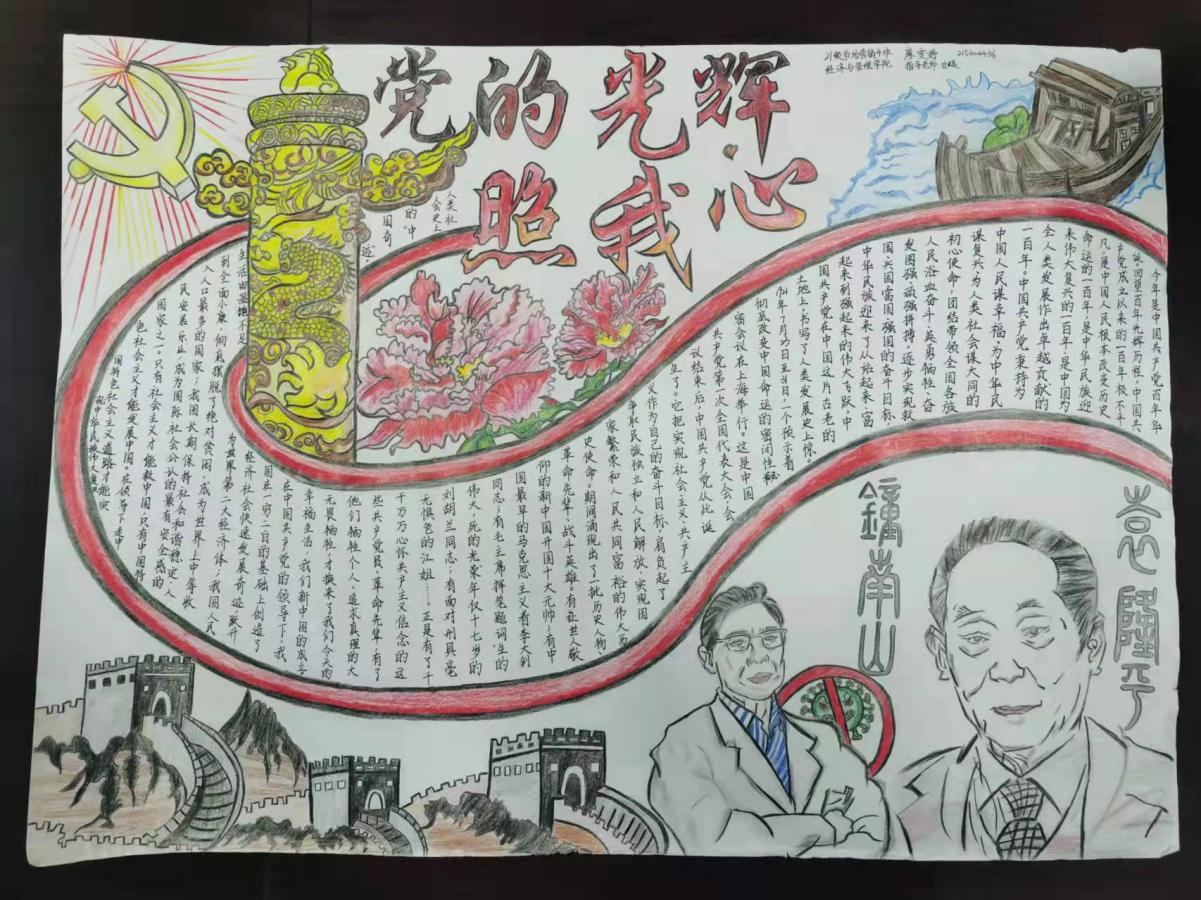 党的光辉
照我心
经济与管理学院 指导老师
今年是中国共产党百年华
诞。回望百年光辉历程,中国共
产党成立以来的一百年极不平
凡,是中国人民根本改变历史
命运的一百年,是中华民族迎
来伟大复兴的一百年,是中国为
全人类发展作出卓越贡献的
一百年。中国共产党秉持为
中国人民谋幸福,为中华民
谋复兴,为人类社会谋大同的
初心使命,团结带领全国各族
人民浴血奋斗、英勇牺牲、奋
发图强、顽强拼搏,逐步实现救
国、兴国、富国、强国的奋斗目标,
中华民族迎来了从站起来、富
起来到强起来的伟大飞跃,中
国共产党在中国这片古老的
土地上书写了人类发展史上惊。
日,一个预示着
彻底改变中国命运的密闭性秘
密会议在上海举行。这是中国
共产党第一次全国代表大会,会
议结束后,中国共产党从此诞
生了。它把实现社会主义、共产主
义作为自己的奋斗目标,肩负起了
争取民族独立和人民解放,实现国
家繁荣和人民共同富裕的伟大历
史使命。期间涌现出了一批历史人物、
革命先辈、战斗英雄。有让世人敬
仰的新中国开国十大元帅;有中
国最早的马克思主义者李大钊
同志;有毛主席挥笔题词"生的
伟大,死的光荣"年仅十七岁的
刘胡兰同志;有面对刑具毫
无惧色的江姐……。正是有了千
千万万心怀共产主义信念的这
些共产党员、革命先辈,有了
他们牺牲个人、追求真理的大
无畏牺牲,才换来了我们今天的
幸福生活,我们新中国的成立
在中国共产党的领导下,我
国在一穷二白的基础上创造了
经济社会快速发展奇迹,跃升
为世界第二大经济体;我国人民
生活由温饱不足
到全面小康,彻底摆脱了绝对贫困,成为世界上中等收
入人口最多的国家;我国长期保持社会和谐稳定、人
民安居乐业,成为国际社会公认的最有安全感的
国家之一。只有社会主义才能救中国,只有中国特
色社会主义才能发展中国。在领导下走中
国特色社会主义道路才能实
现中华民族伟大复兴
人类社
会史上
的"中
国奇
迹"。
鐘南山
袁隆平